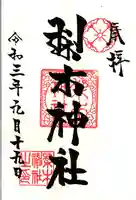 奉拝
梨木神社
令和三年九月十五日